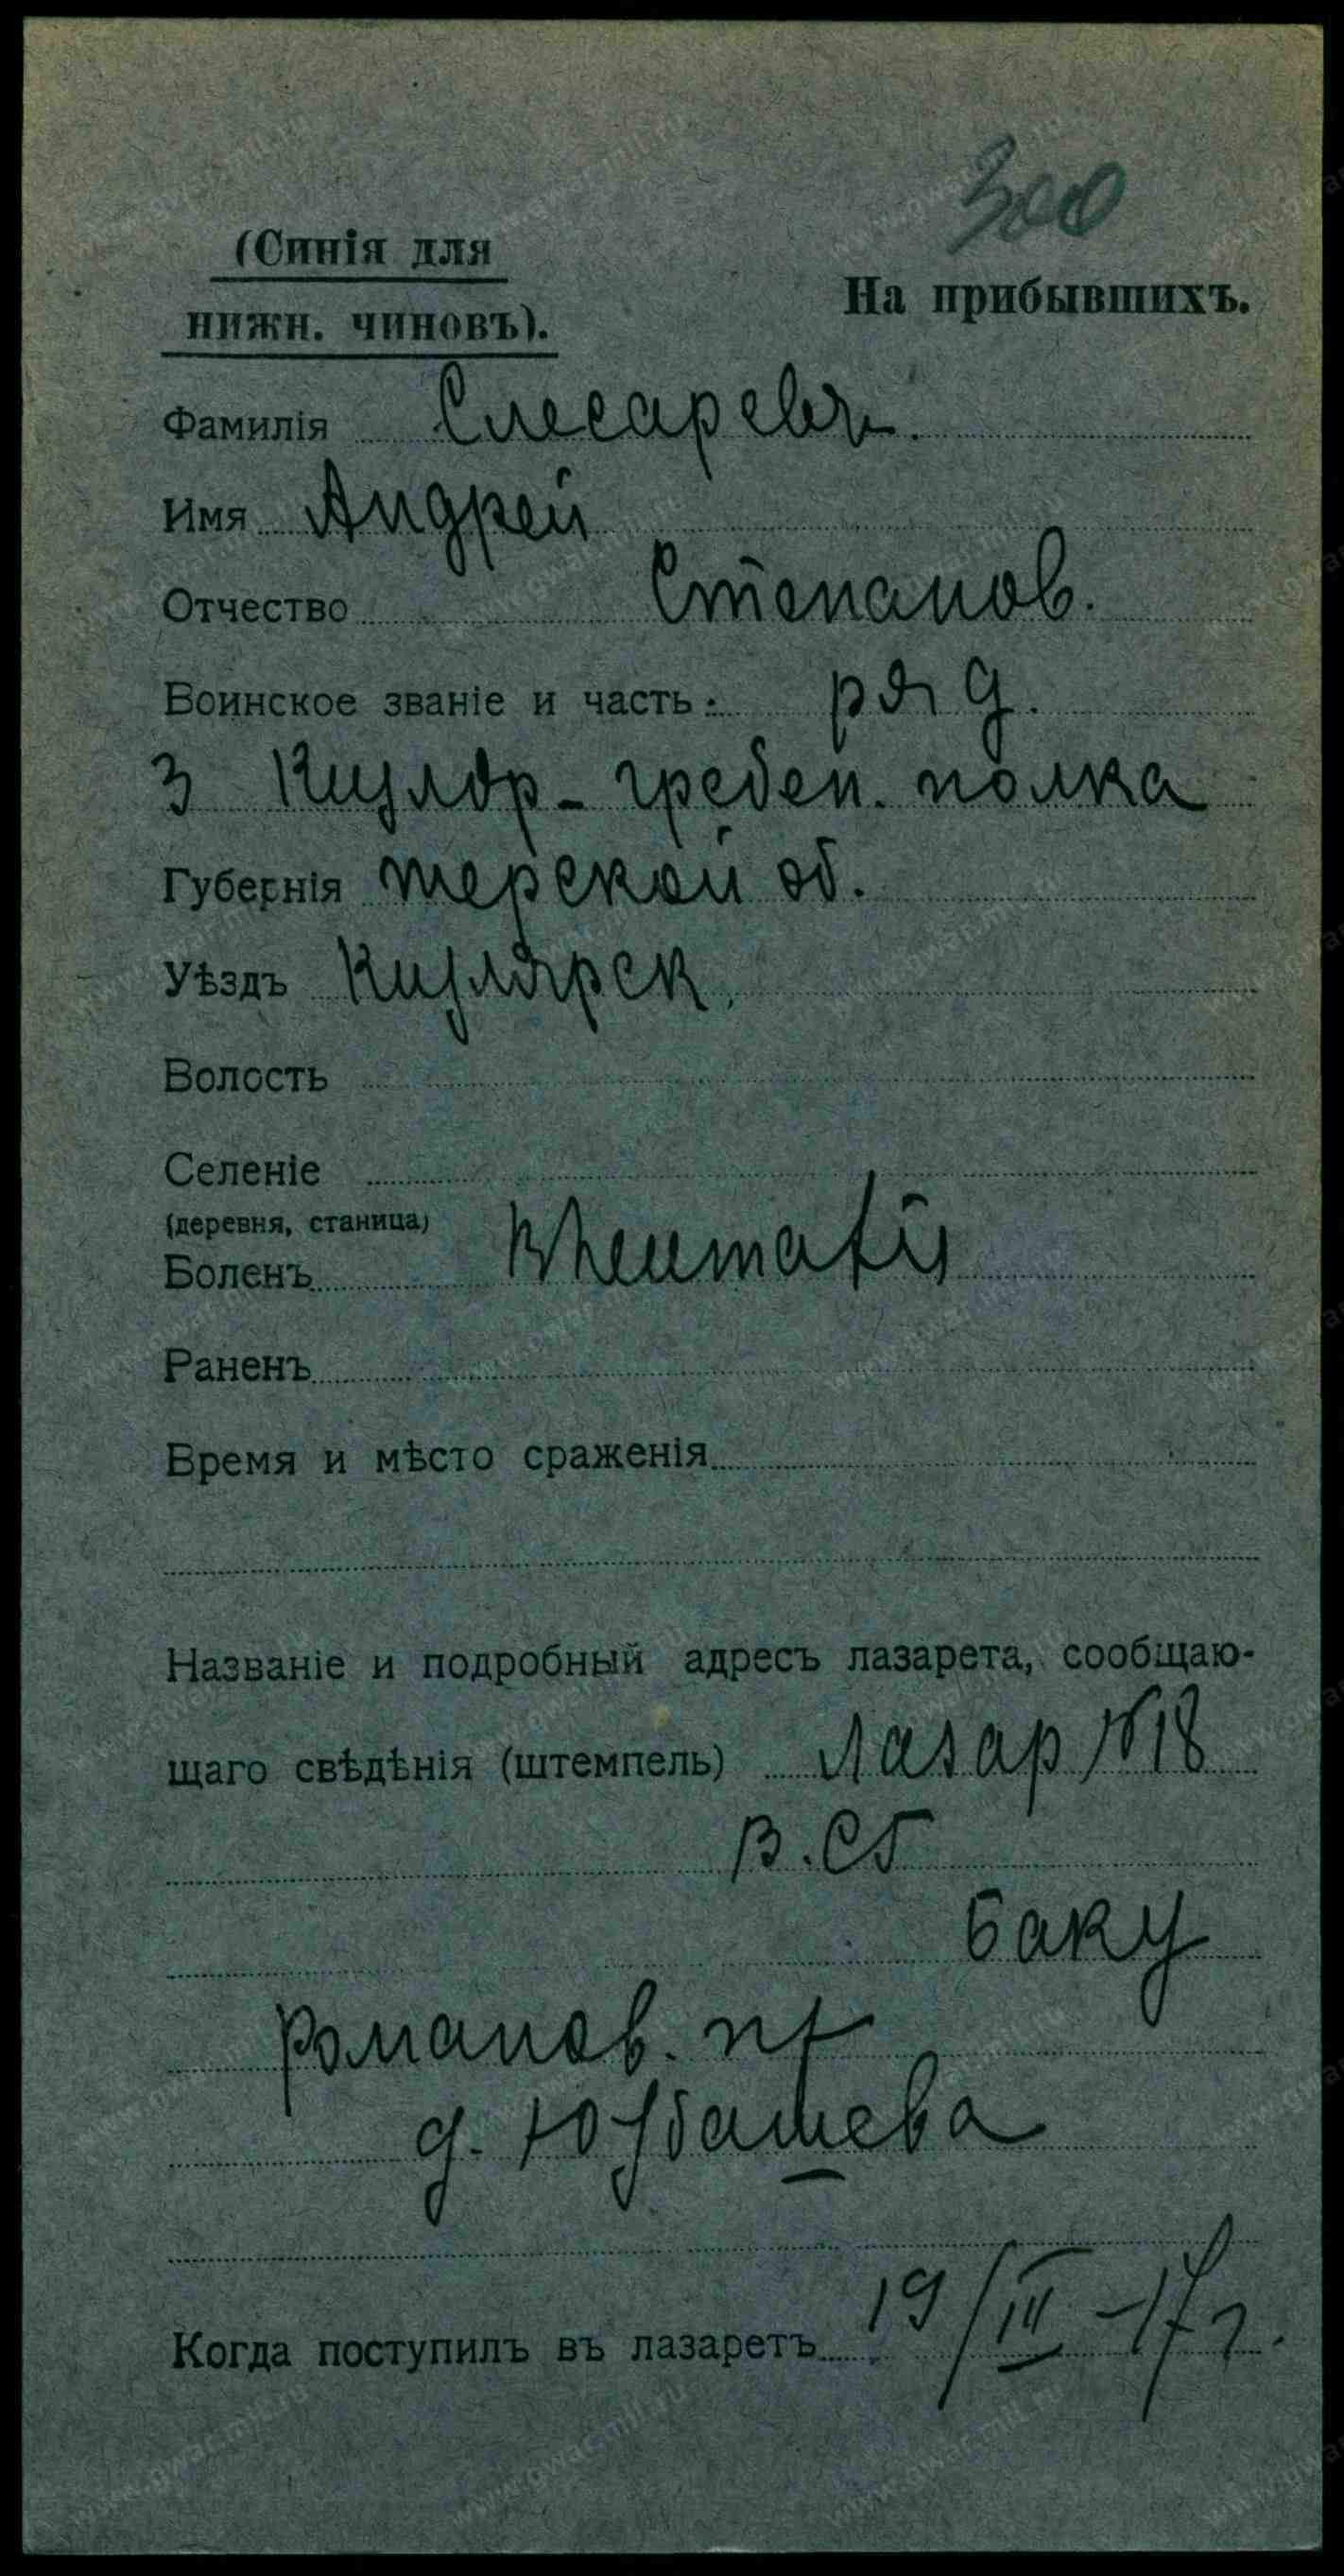 300
(Синія для
нижн. чиновъ).
На прибывшихъ.
Фамилія Слесаревъ.
Имя Андрей
Отчество Степанов.
Воинское званіе и часть: ряд.
3 Кизляр-гребен. полка
Губернія терской об.
Уѣздъ Кизлярск.
Волость
Селеніе
(деревня, станица)
Боленъ Rheumatis
Раненъ
Время и мѣсто сраженія
Названіе и подробный адресъ лазарета, сообщаю-
щаго свѣдѣнія (штемпель) Лазар №18
В.СГ
Баку
Романов. пр
д. Юзбашева
Когда поступилъ въ лазаретъ 19/III-17 г.